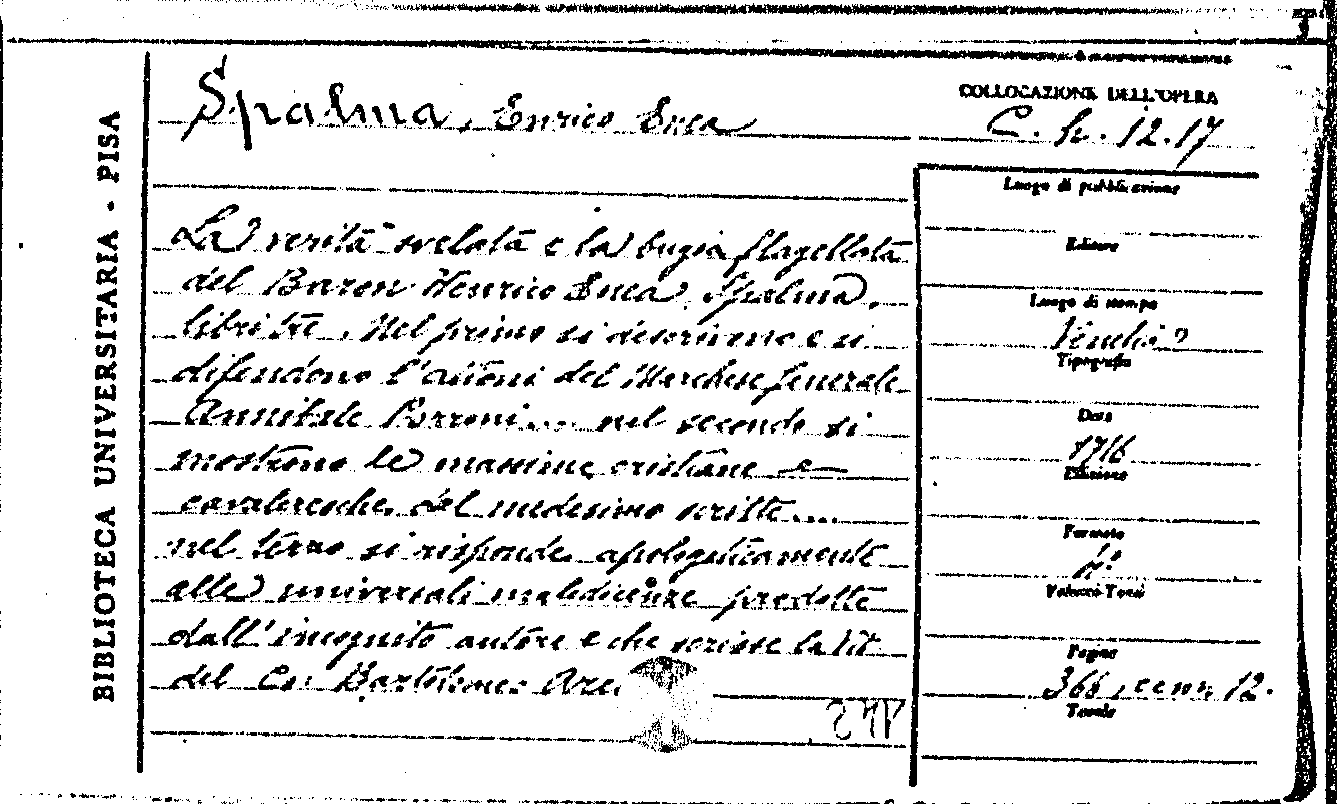 BIBLIOTECA UNIVERSITARIA - PISA
Spalma, Enrico Luca
COLLOCAZIONE DELL'OPERA
C. h. 12.17
La verità svelata e la bugia flagellata
del Baron Henrico Luca Spalma,
libri tre. Nel primo si descrivono e si
difendono l'attioni del Marchese Generale
Annibale Porroni.... nel secondo si
mostrono le massime cristiane e
cavaleresche del medesimo scritte....
nel terzo si risponde apologeticamente
alle universali maledicenze predette
dall'incognito autore e che scrisse la Vit
del Co: Bartolomeo Are
Luogo di pubblicazione
Editore
Luogo di stampa
Venetia?
Tipografia
Data
1716
Edizione
Formato
4°
Volumi-Tomi
Pagine
366, cc nn 12.
Tavole